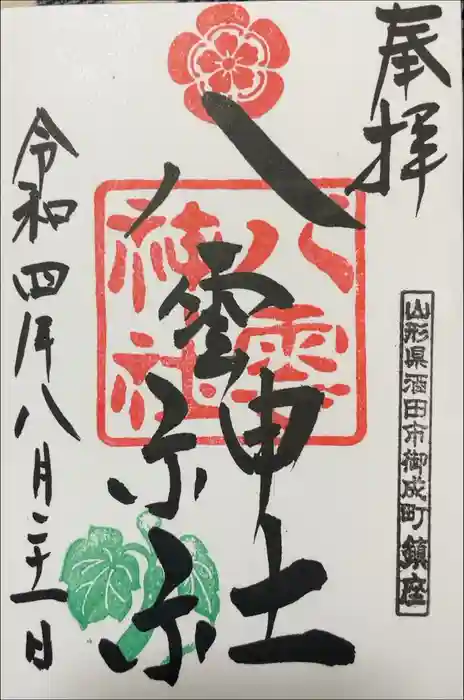 奉拝
山形県酒田市御成町鎮座
八雲神社
八雲神社
令和四年八月二十一日